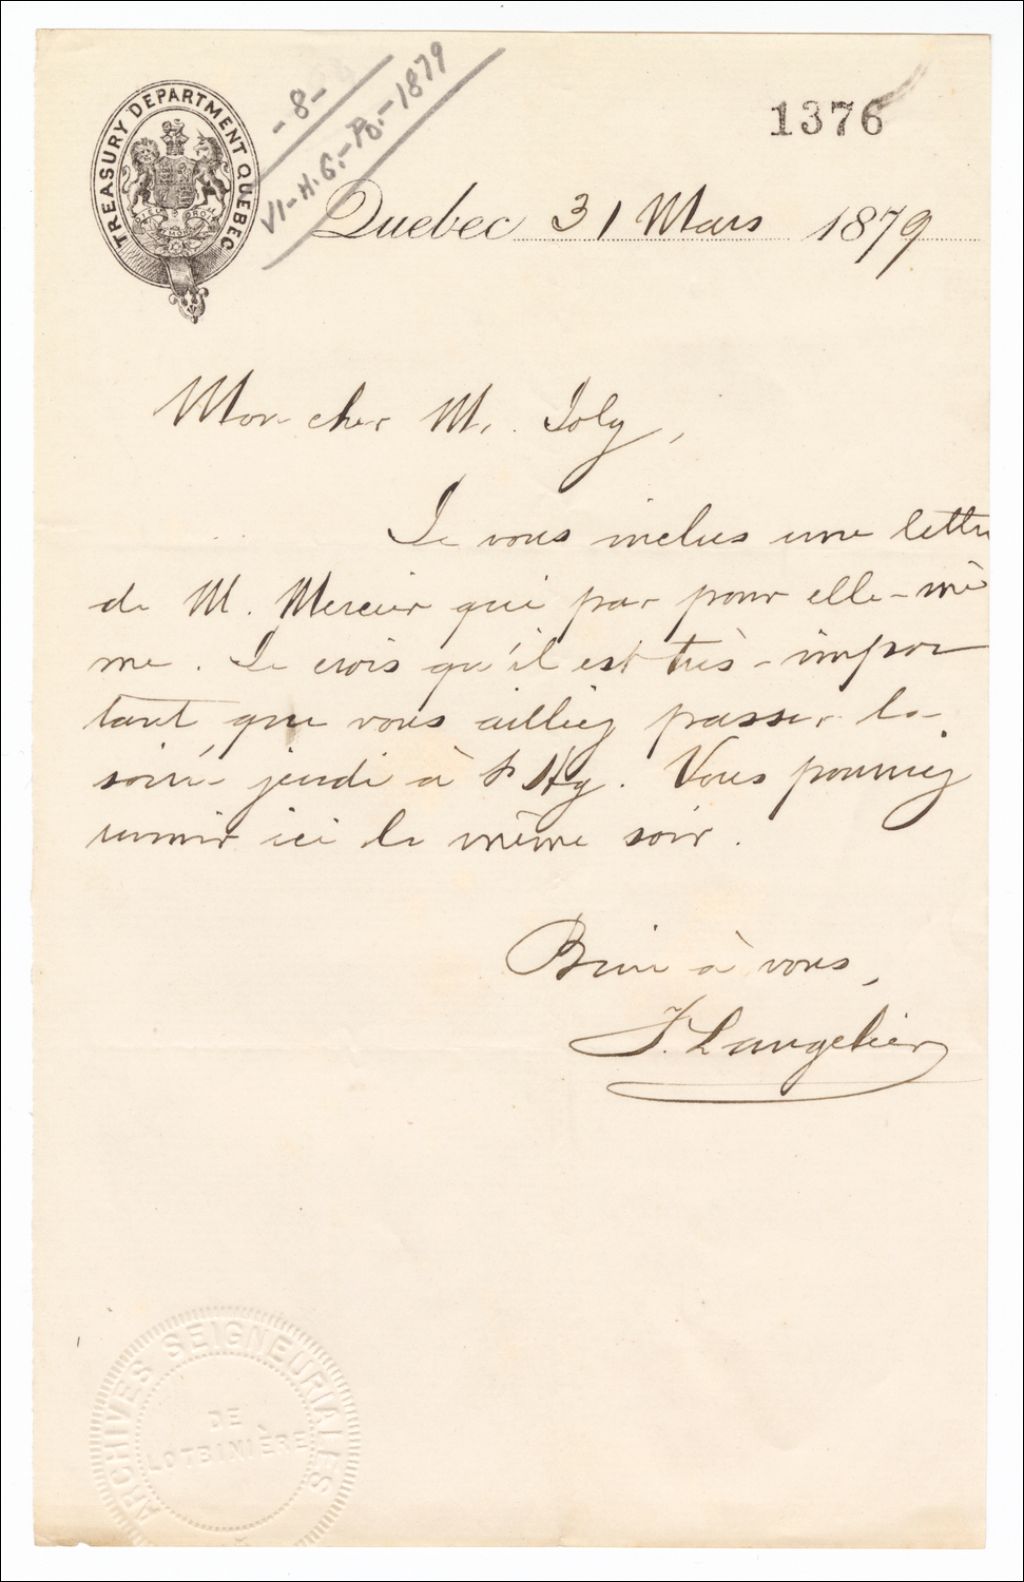 TREASURY DEPARTMENT QUEBEC
- 8 -
VI-H.G.-Po.-1879
1376
Quebec 31 Mars 1879
Mon cher M. Joly,
Je vous inclus une lettre
de M. Mercier qui par pour elle-mê
me. Je crois qu'il est très-impor
tant que vous alliez passer la
soirée jeudi à St Hy. Vous pourriez
revenir ici le même soir.
Bien à vous,
F. Langelier
ARCHIVES SEIGNEURIALES
DE
LOTBINIÈRE